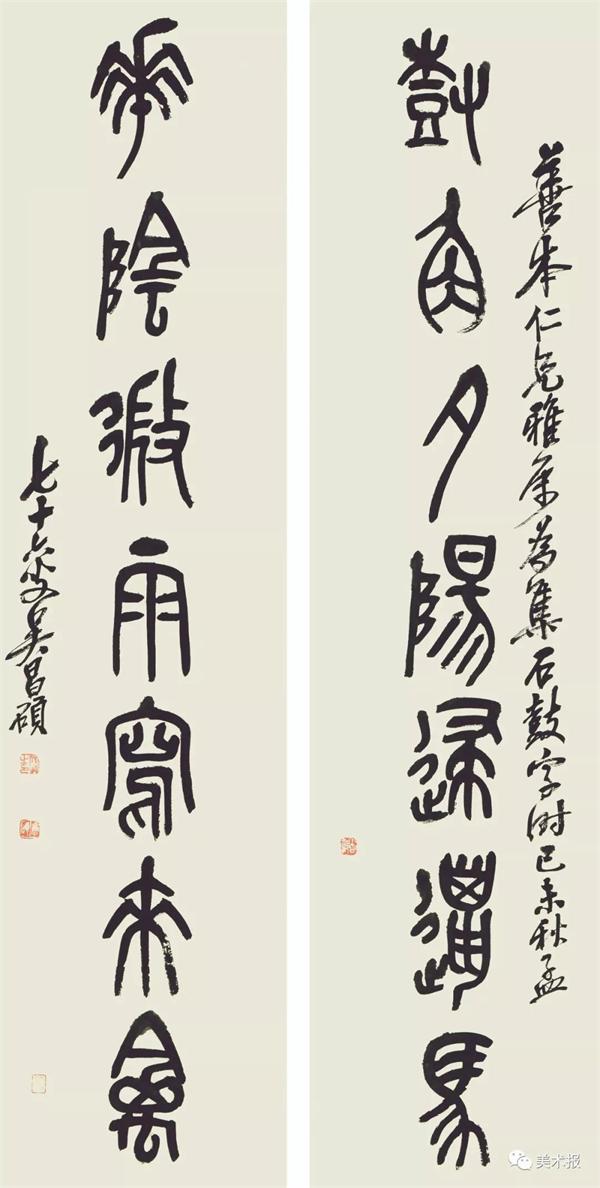 善本仁兄雅屬為集石鼓字時己未秋孟
尌角夕陽歸邋馬
華陰微雨寫來禽
七十六叟吳昌碩
美术报